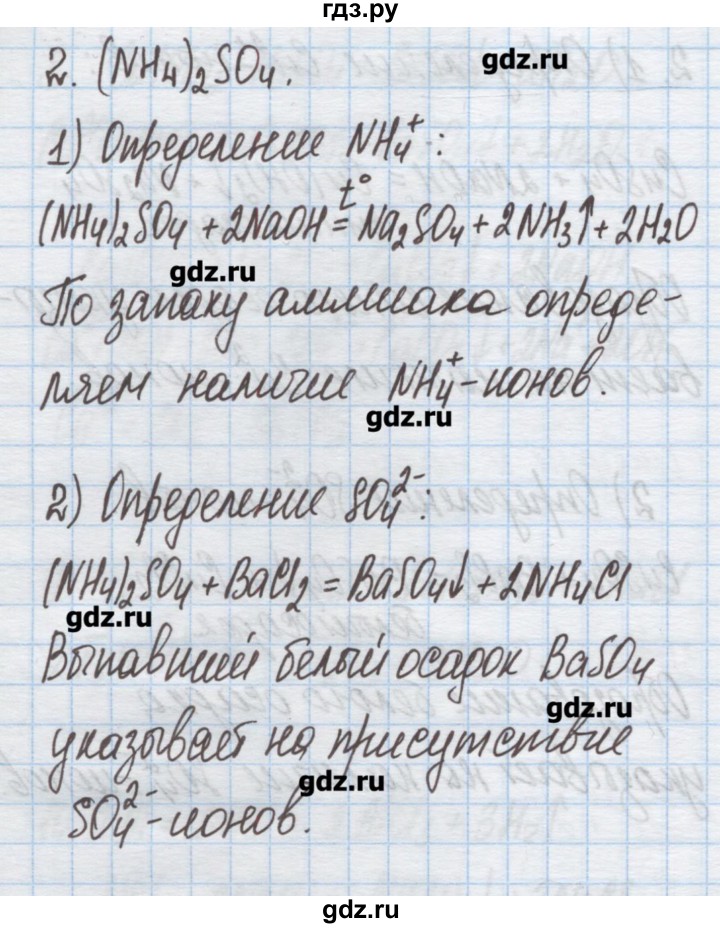 гдз.ру
gdz.ru
2. (NH₄)₂SO₄.
1) Определение NH₄⁺:
(NH₄)₂SO₄ + 2NaOH =t° Na₂SO₄ + 2NH₃↑ + 2H₂O
gdz.ru
По запаху аммиака опреде-
ляем наличие NH₄⁺-ионов.
gdz.ru
2) Определение SO₄²⁻:
(NH₄)₂SO₄ + BaCl₂ = BaSO₄↓ + 2NH₄Cl
gdz.ru
Выпавший белый осадок BaSO₄
gdz.ru
указывает на присутствие
gdz.ru
SO₄²⁻-ионов.
gdz.ru